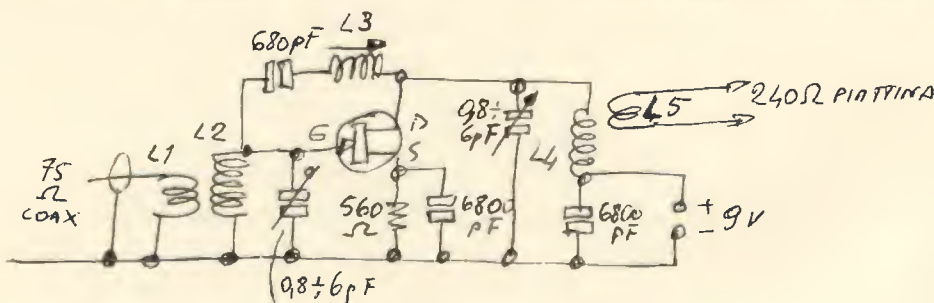 680pF
L3
L1
L2
75
Ω
COAX
G
D
S
0,8÷
6pF
L4
L5
240Ω PIATTINA
560
Ω
6800
pF
6800
pF
+
-
9V
0,8÷6pF